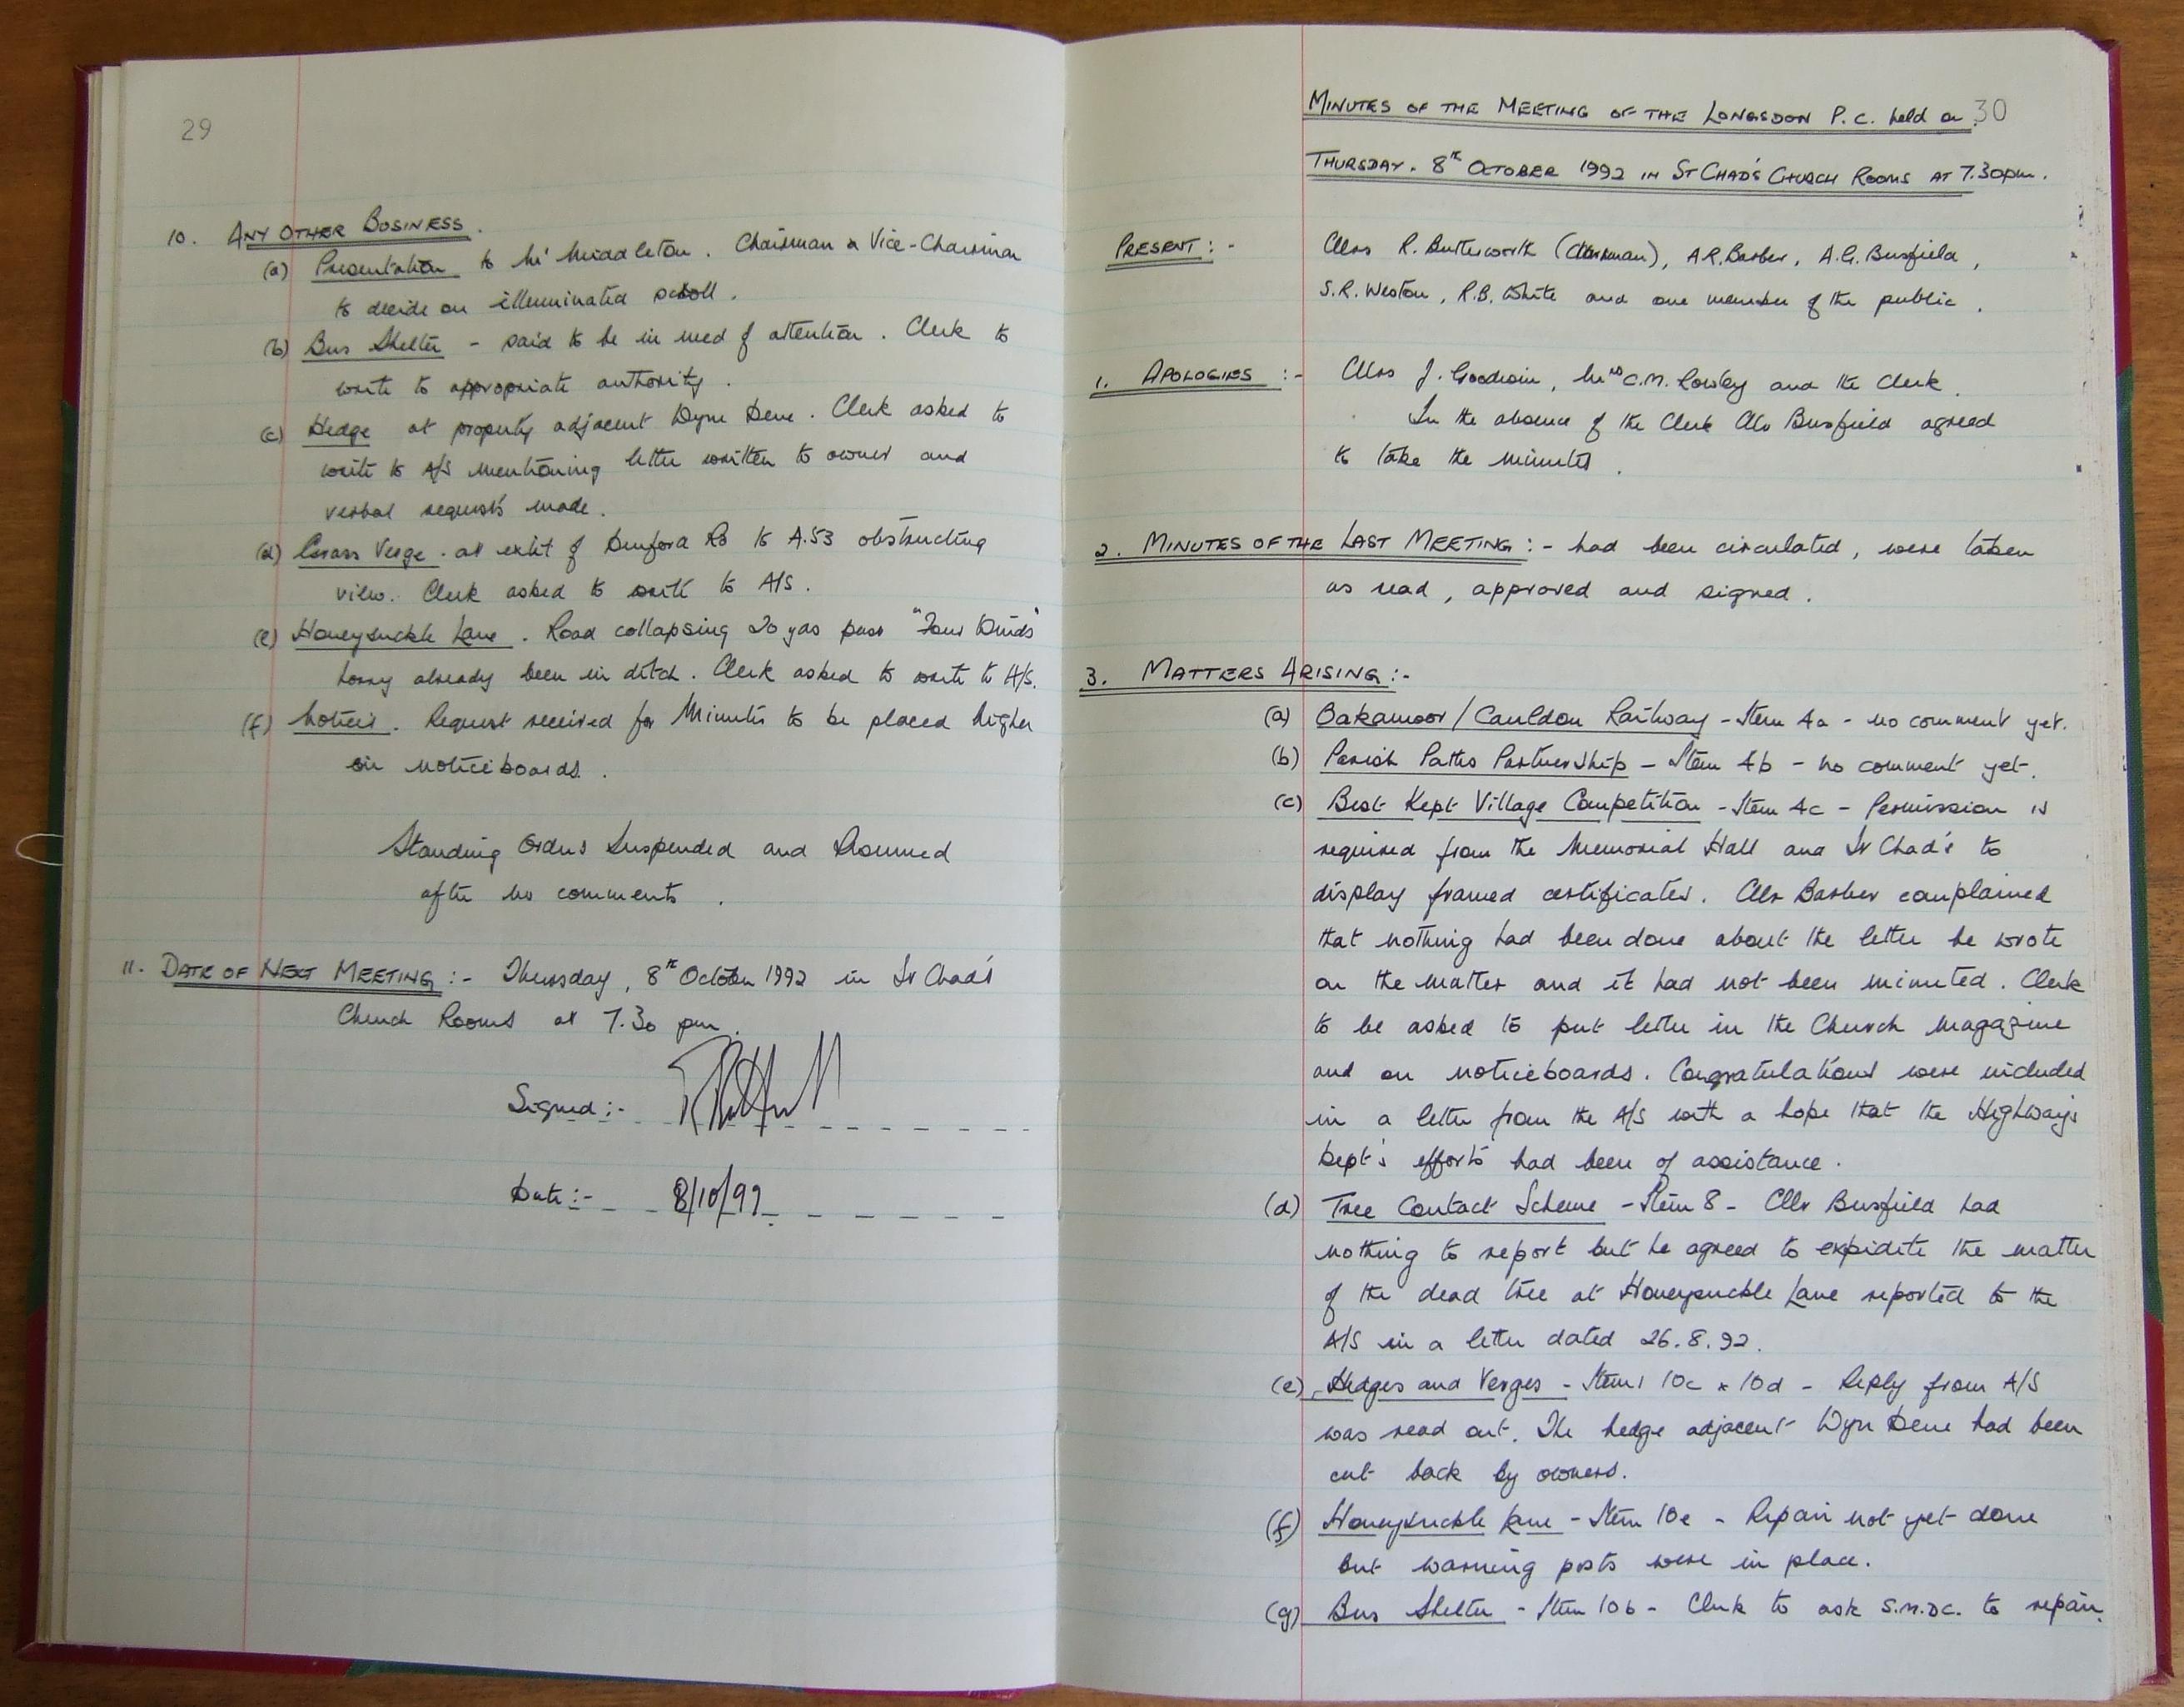 29
10. ANY OTHER BUSINESS.
(a) Presentation to Mr Middleton. Chairman & Vice-Chairman
to decide on illuminated scroll.
(b) Bus Shelter - said to be in need of attention. Clerk to
write to appropriate authority.
(c) Hedge at property adjacent Wyn Dene. Clerk asked to
write to A/S mentioning letter written to owner and
verbal requests made.
(d) Grass Verge. at exit of Denford Rd to A.53 obstructing
view. Clerk asked to write to A/S.
(e) Honeysuckle Lane. Road collapsing 20 yds past "Four Winds"
Lorry already been in ditch. Clerk asked to write to A/S.
(f) Notices. Request received for Minutes to be placed higher
on noticeboards.
Standing Orders Suspended and Resumed
after no comments.
11. DATE OF NEXT MEETING :- Thursday, 8th October 1992 in St Chad's
Church Rooms at 7.30 pm.
Signed :-
Date :- 8/10/92
30
MINUTES OF THE MEETING OF THE LONGSDON P.C. held on
THURSDAY. 8th OCTOBER 1992 IN ST CHAD'S CHURCH ROOMS AT 7.30pm.
PRESENT :- Cllrs R. Butterworth (Chairman), A.R. Barber, A.G. Busfield,
S.R. Weston, R.B. White and one member of the public.
1. APOLOGIES :- Cllrs J. Goodwin, Mrs C.M. Rowley and the Clerk.
In the absence of the Clerk Cllr Busfield agreed
to take the minutes.
2. MINUTES OF THE LAST MEETING :- had been circulated, were taken
as read, approved and signed.
3. MATTERS ARISING :-
(a) Oakamoor/Cauldon Railway - Item 4a - no comment yet.
(b) Parish Paths Partnership - Item 4b - no comment yet.
(c) Best Kept Village Competition - Item 4c - Permission is
required from the Memorial Hall and St Chad's to
display framed certificates. Cllr Barber complained
that nothing had been done about the letter he wrote
on the matter and it had not been minuted. Clerk
to be asked to put letter in the Church Magazine
and on noticeboards. Congratulations were included
in a letter from the A/S with a hope that the Highways
Dept's efforts had been of assistance.
(d) Tree Contact Scheme - Item 8 - Cllr Busfield had
nothing to report but he agreed to expidite the matter
of the dead tree at Honeysuckle Lane reported to the
A/S in a letter dated 26.8.92.
(e) Hedges and Verges - Items 10c & 10d - Reply from A/S
was read out. The hedge adjacent Wyn Dene had been
cut back by owners.
(f) Honeysuckle Lane - Item 10e - Repair not yet done
but warning posts were in place.
(g) Bus Shelter - Item 10b - Clerk to ask S.M.D.C. to repair.